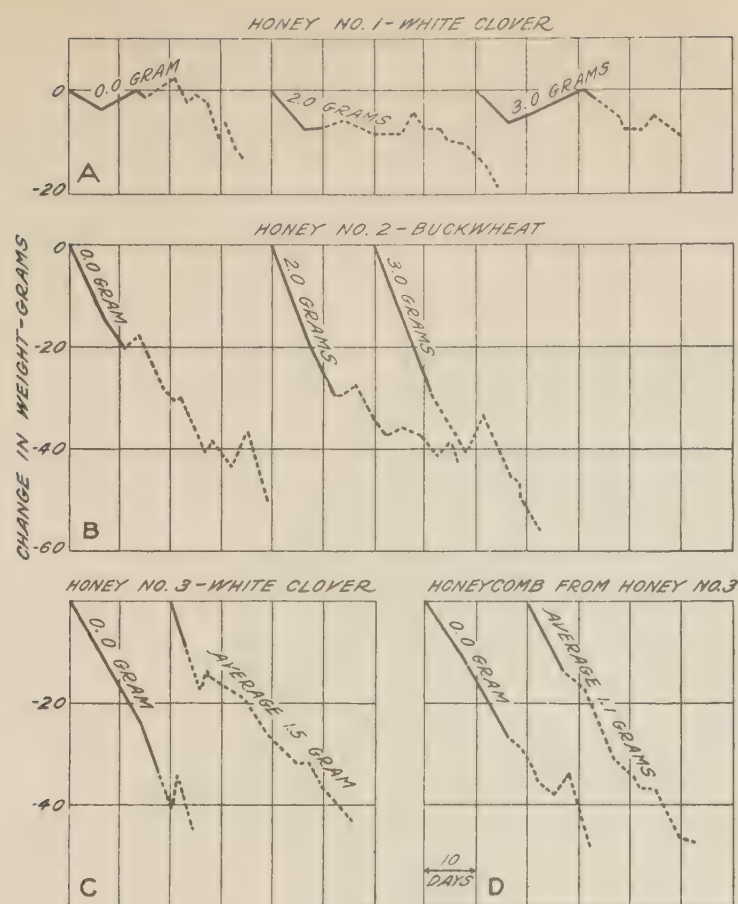 HONEY NO. 1 - WHITE CLOVER
0
-20
0.0 GRAM
2.0 GRAMS
3.0 GRAMS
A
HONEY NO. 2 - BUCKWHEAT
0
-20
-40
-60
0.0 GRAM
2.0 GRAMS
3.0 GRAMS
B
CHANGE IN WEIGHT-GRAMS
HONEY NO. 3 - WHITE CLOVER
-20
-40
0.0 GRAM
AVERAGE 1.5 GRAM
C
HONEYCOMB FROM HONEY NO.3
0.0 GRAM
AVERAGE 1.1 GRAMS
10
DAYS
D